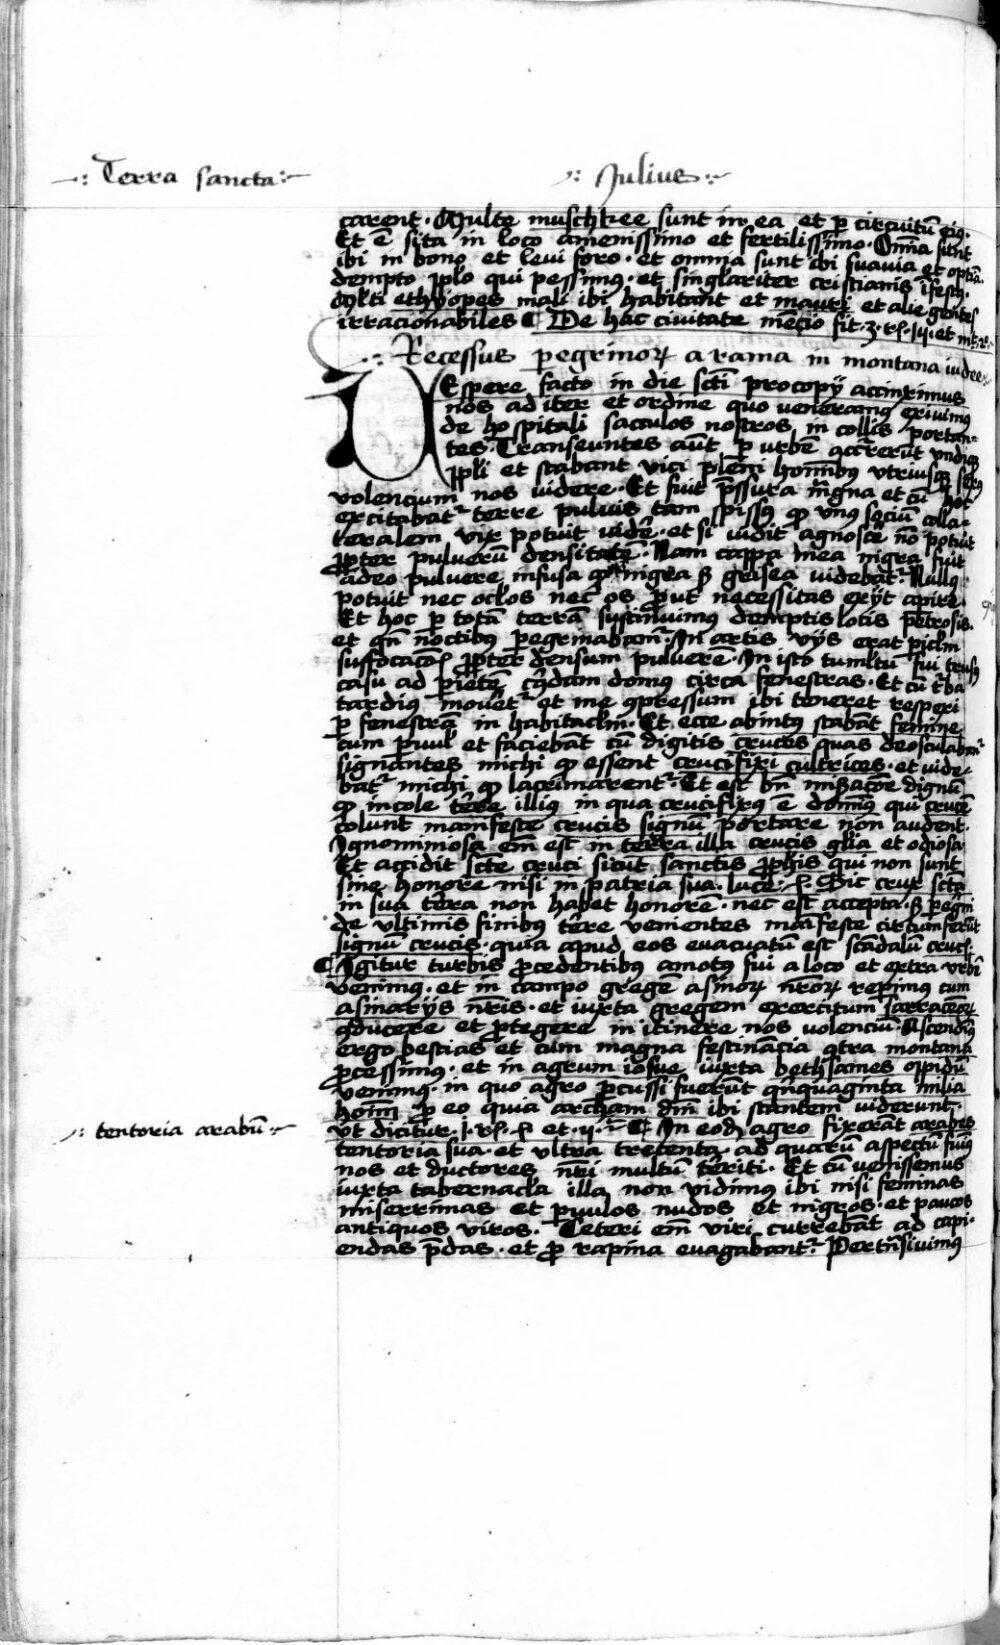 Terra sancta
Julius
carent. Multe muschkee sunt in ea et p circuitū eiꝰ.
Et ē sita in loco amenissimo et fertilissimo. Omnia sunt
ibi in bono et levi foro. et omnia sunt ibi suavia et optia
dempto pplo qui pessimꝰ. et singlariter cristianis īfestꝰ.
Multi ethyopes mali ibi habitant et mauri et alie gentes
irracionabiles ¶ De hac civitate mēcio fit. 3. et
Recessus pegrinoꝝ a rama in montana iudee
VEspere facto in die scti procopij accinximus
nos ad iter et ordine quo veneramꝰ exivimus
de hospitali sacculos nostros in collis portan-
tes. Transeuntes aūt p urbē ꝯcurrerūt undiqꝫ
ppli et stabant vici pleni hominibꝰ utriusqꝫ sexꝰ
volencium nos videre. Et fuit pssura magna et cū hoc
excitabat terre pulvis tam spissꝰ ꝙ unꝰ sociū colla-
teralem vix potuit videre. et si vidit agnosce nō potuit
ppter pulverū densitatē. Nam cappa mea nigra fuit
adeo pulvere infusa ꝙ nigra ꝫ grisea videbat. Nullꝰ
potuit nec oclos nec os put necessitas exijt apire.
Et hoc p totā terrā sustinuimus demptis locis petrosis.
et qn noctibꝰ pegrinabam. In artis vijs erat piclm
suffocacōis ppter densum pulverē. In isto tumltu fui trusꝰ
casu ad pietē cꝰdam domus circa fenestras. Et cū tba
tardiꝰ movēt et me ꝯpressum ibi teneret respexi
p fenestrā in habitaclm. Et ecce abintꝰ stabāt femine
cum pvul et faciebāt cū digitis cruces quas deosculabant
signantes michi ꝙ essent crucifixi cultrices. et vide-
bat michi ꝙ lacrimarent. Et est bn misacōe dignū
ꝙ incole tere illius in qua crucifixꝰ ē dominꝰ qui crucē
colunt manifeste crucis signū portare non audent.
Ignominiosa em est in terra illa crucis glia et odiosa.
Et accidit scte cruci sicut sanctis pphis qui non sunt
sine honore nisi in patria sua. luce. Sic crux scta
in sua terra non habet honorē. nec est accepta. ꝫ pegni
de ultimis finibꝰ tere venientes manifeste circumferūt
signū crucis. quia apud eos evacuatū est scādalū crucis.
¶ Igitur turbis pcedentibꝰ amotus fui a loco et extra urbē
venimus. et in campo gregē asinoꝝ nroꝝ repimus cum
asinarijs nris. et iuxta gregem exercitum sarracenoꝝ
ꝯducere et ptegere in itinere nos volenciū. Ascendimꝰ
ergo bestias et cum magna festinācia ꝯtra montana
pcessimus. et in agrum iosue iuxta bethsames oppidū
venimꝰ. in quo agro pcussi fuerūt qnquaginta milia
hoim p eo quia archam dni ibi stantem viderunt.
ut dicitur. ¶ In eodꝫ agro fixerāt arabes
tentoria sua. et ultra trecenta. ad quarū aspectū fuimꝰ
nos et ductores nri multū teriti. Et cū venissemus
iuxta tabernacla illa non vidimus ibi nisi feminas
miserrimas et pvulos nudos et nigros. et paucos
antiquos viros. Ceteri em viri currebāt ad capi-
endas pdas. et p rapina evagabant. Pertnsivimus
tentoria arabū